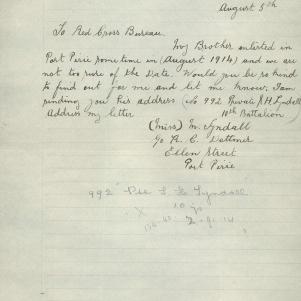 August 5th
To Red Cross Bureau.
My Brother enlisted in
Port Pirie sometime in (August 1914) and we are
not too sure of the Date. Would you be so kind
to find out for me and let me know. I am
sending you his address (No 992 Private J H Tyndall
Address my letter 10th Battalion
(Miss) M. Tyndall
C/o R. C. Dettmer
Ellen Street
Port Pirie
992 Pte Tyndall
X 10